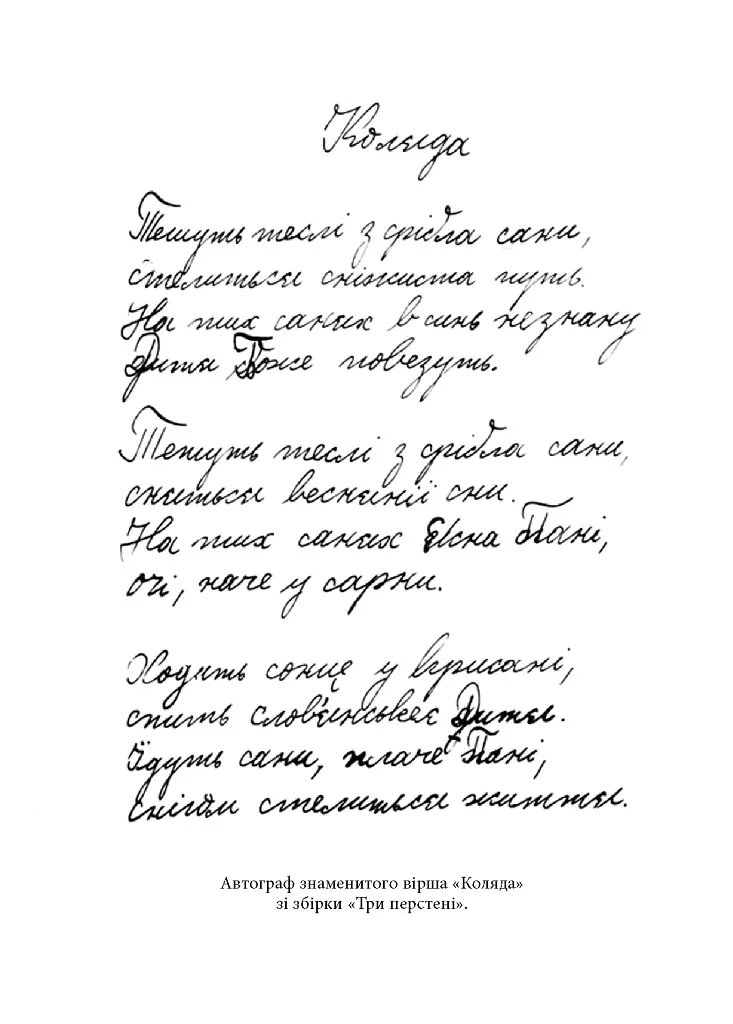 Коляда
Тешуть теслі з срібла сани,
стелиться сніжиста путь.
На тих санях в синь незнану
Дитя Боже повезуть.
Тешуть теслі з срібла сани,
сняться веснянії сни.
На тих санях Ясна Пані,
очі, наче у сарни.
Ходить сонце у крисані,
спить слов'янськеє Дитя.
Їдуть сани, плаче Пані,
снігом стелиться життя.
Автограф знаменитого вірша «Коляда»
зі збірки «Три перстені».